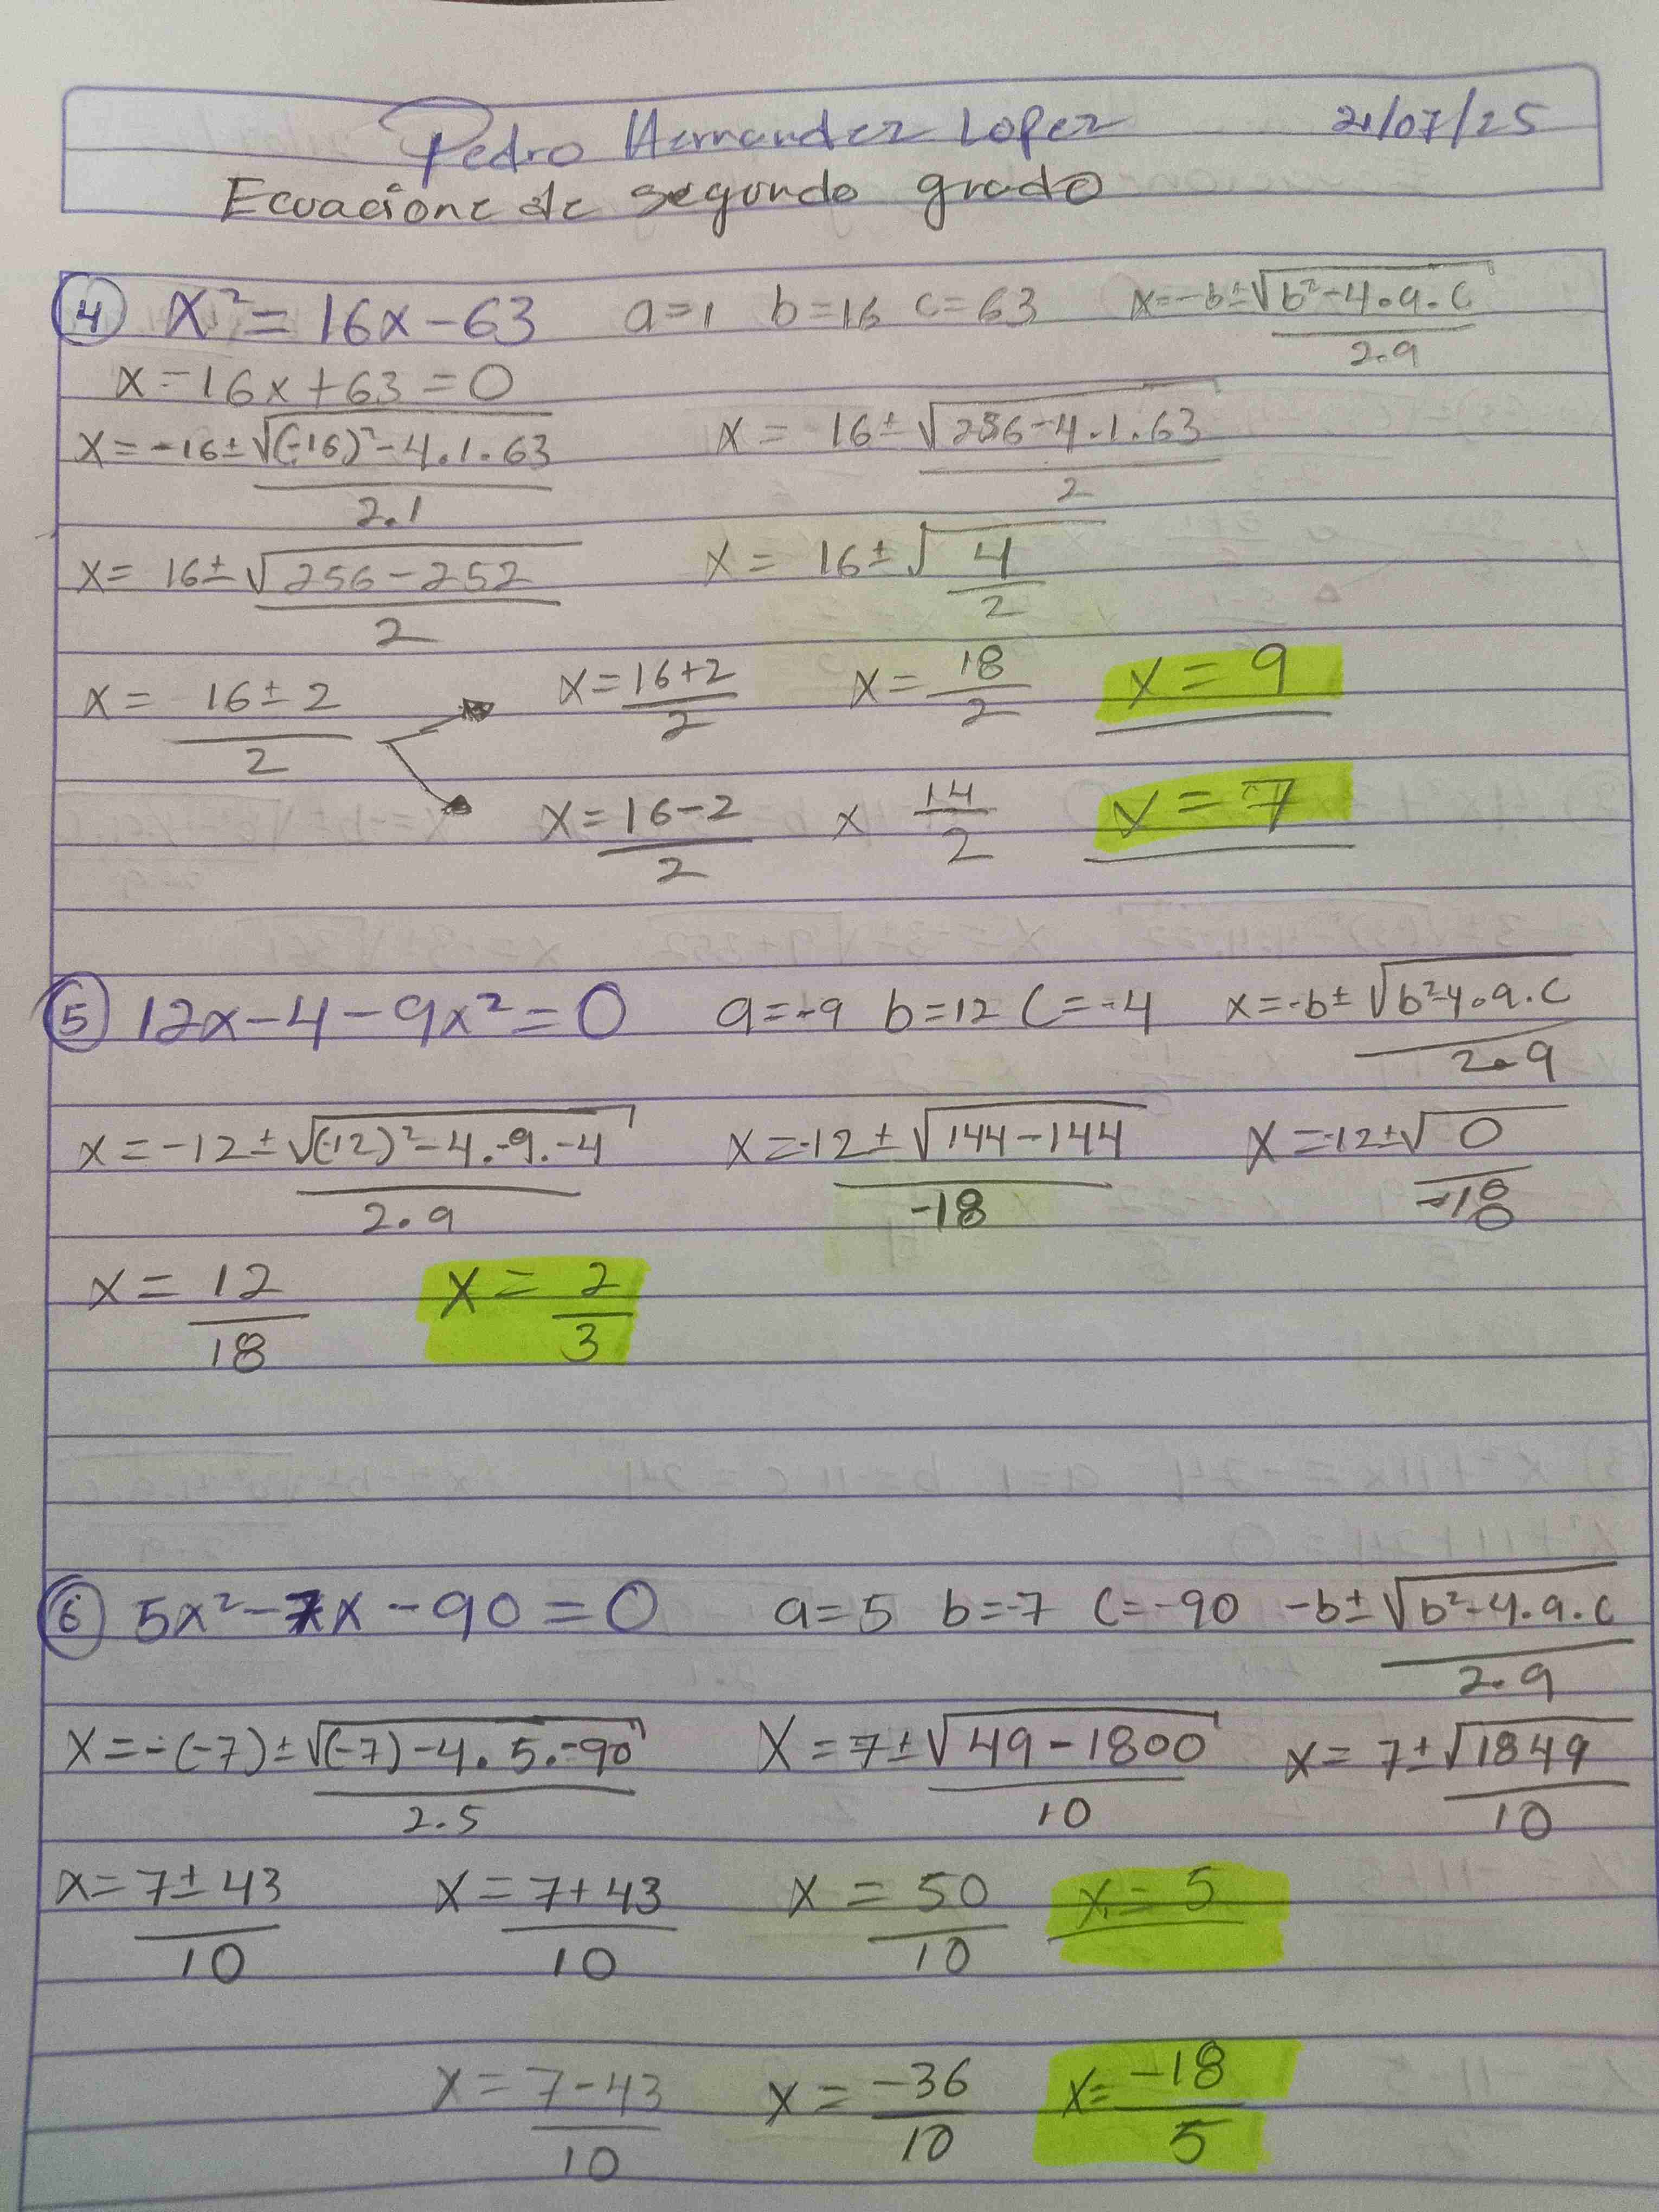 Pedro Hernandez Lopez 21/07/25
Ecuacione de segundo grado
4 x² = 16x - 63 a=1 b=16 c=63 x=-b±√b²-4·a·c / 2·a
x-16x+63=0
x=-16±√(-16)²-4.1.63 / 2.1 x= 16±√256-4.1.63 / 2
x= 16±√256-252 / 2 x= 16±√4 / 2
x= 16±2 / 2 x=16+2 / 2 x=18/2 x=9
x=16-2 / 2 x 14/2 x=7
5 12x-4-9x²=0 a=-9 b=12 c=-4 x=-b±√b²-4·a·c / 2·a
x=-12±√(-12)²-4.-9.-4 / 2.9 x=-12±√144-144 / -18 x=-12±√0 / -18
x=12/18 x=2/3
6 5x²-7x-90=0 a=5 b=-7 c=-90 -b±√b²-4·a·c / 2·a
x=-(-7)±√(-7)-4.5.-90 / 2.5 x=7±√49-1800 / 10 x=7±√1849 / 10
x=7±43 / 10 x=7+43 / 10 x=50/10 x=5
x=7-43 / 10 x=-36/10 x=-18/5